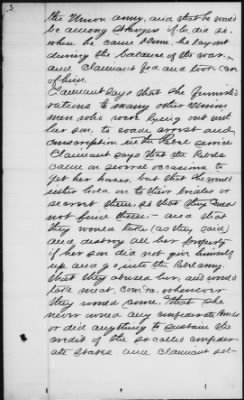 3.
the Union army, and that he would
be among strangers & to die so.
when he came home, he lay out
during the balance of the war.
and Claimant fed and took care
of him.
Claimant says that she furnished
rations to many other Union
men who were lying out with
her son, to evade arrest and
conscription in the Rebel service
Claimant says that the Rebels
came on several occasions to
get her horse, but that she would
either
secrete them, so that they could
not find them; and that
they would take (as they said)
and destroy all her property
if her son did not give himself
up and go into the Rebel army,
that they abused her, and would
take meat, corn &c. whenever
they would come. That she
never owned any confederate bonds
or did anything to sustain the
credit of the so called confeder-
ate states and claimant